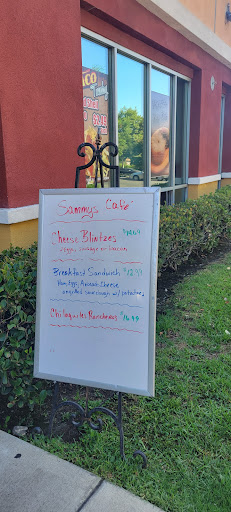 Sammys Cafe
Cheese Blintzes
eggs, sausage or bacon
Breakfast Sandwich $12.99
Ham, Eggs, American Cheese
on grilled sourdough w/ potatoes
Chilaquiles Rancheros $16.99